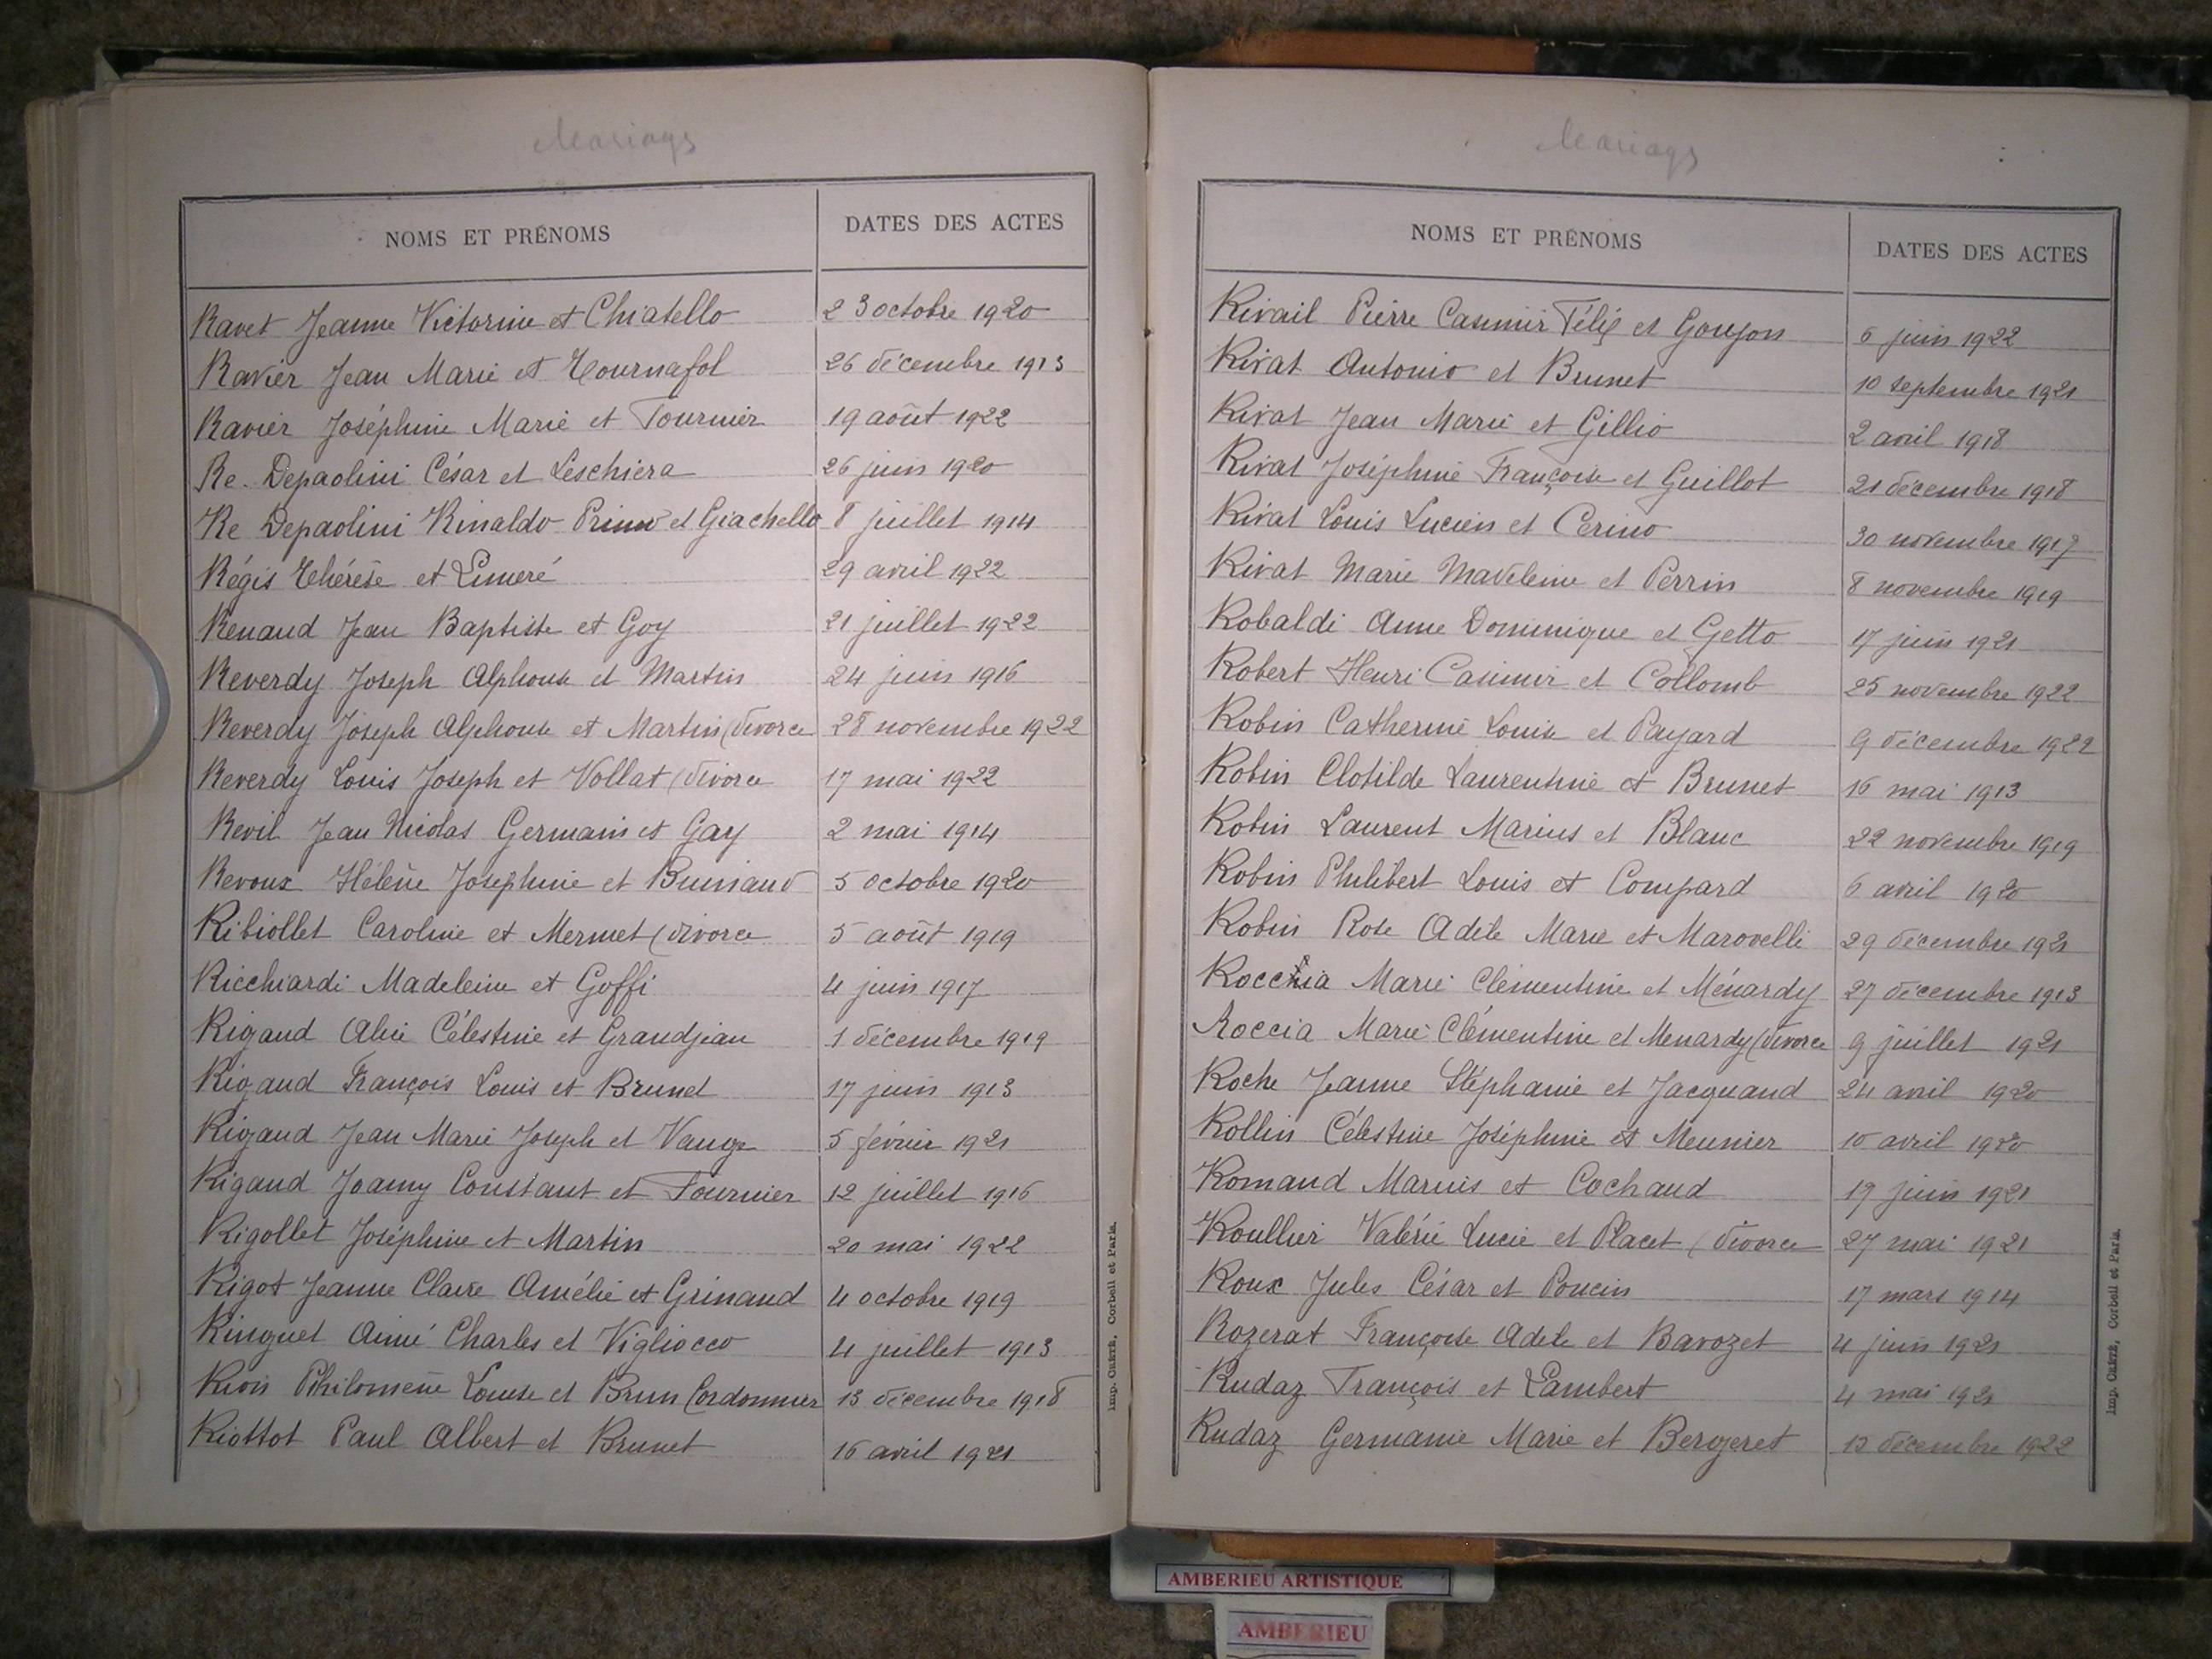 Mariages
NOMS ET PRÉNOMS DATES DES ACTES
Ravet Jeanne Victorine et Chiatello 23 octobre 1920
Ravier Jean Marie et Tournafol 26 décembre 1913
Ravier Joséphine Marie et Tournier 19 août 1922
Re. Depaolini César et Leschiera 26 juin 1920
Re Depaolini Rinaldo Primo et Giachello 8 juillet 1914
Régis Thérèse et Limeré 29 avril 1922
Renaud Jean Baptiste et Goy 21 juillet 1922
Reverdy Joseph Alphonse et Martin 24 juin 1916
Reverdy Joseph Alphonse et Martin (divorce 28 novembre 1922
Reverdy Louis Joseph et Vollat (divorce 17 mai 1922
Revil Jean Nicolas Germain et Gay 2 mai 1914
Revoux Hélène Joséphine et Buinand 5 octobre 1920
Ribiollet Caroline et Mermet (divorce 5 août 1919
Ricchiardi Madeleine et Goffi 4 juin 1917
Rigaud Alice Célestine et Grandjean 1 décembre 1919
Rigaud François Louis et Brunet 17 juin 1913
Rigaud Jean Marie Joseph et Vauge 5 février 1921
Rigaud Joanny Constant et Fournier 12 juillet 1916
Rigollet Joséphine et Martin 20 mai 1922
Rigot Jeanne Claire Amélie et Grinand 4 octobre 1919
Rinquet Aimé Charles et Vigliocco 4 juillet 1913
Rion Philomène Louise et Brun Cordonnier 13 décembre 1918
Riottot Paul Albert et Brunet 16 avril 1921
Imp. CRÉTÉ, Corbeil et Paris.
Mariages
NOMS ET PRÉNOMS DATES DES ACTES
Rivail Pierre Casimir Félix et Goujon 6 juin 1922
Rivat Antonio et Brunet 10 septembre 1921
Rivat Jean Marie et Gillio 2 avril 1918
Rivat Joséphine Françoise et Guillot 21 décembre 1918
Rivat Louis Lucien et Cerino 30 novembre 1917
Rivat Marie Madeleine et Perrin 8 novembre 1919
Robaldi Anne Dominique et Getto 17 juin 1921
Robert Henri Casimir et Collomb 25 novembre 1922
Robin Catherine Louise et Payard 9 décembre 1922
Robin Clotilde Laurentine et Brunet 16 mai 1913
Robin Laurent Marius et Blanc 22 novembre 1919
Robin Philibert Louis et Compard 6 avril 1920
Robin Rose Adèle Marie et Marovelli 29 décembre 1921
Rocchia Marie Clémentine et Ménardy 27 décembre 1913
Roccia Marie Clémentine et Menardy (divorce 9 juillet 1921
Roche Jeanne Stéphanie et Jacquand 24 avril 1920
Rollin Célestine Joséphine et Meunier 10 avril 1920
Romand Marius et Cochaud 19 juin 1921
Roullier Valérie Lucie et Placet (divorce 27 mai 1921
Roux Jules César et Poncin 17 mars 1914
Rozerat Françoise Adèle et Bavozet 4 juin 1921
Rudaz François et Lambert 4 mai 1921
Rudaz Germanie Marie et Bergeret 13 décembre 1922
Imp. CRÉTÉ, Corbeil et Paris.
AMBERIEU ARTISTIQUE
AMBERIEU